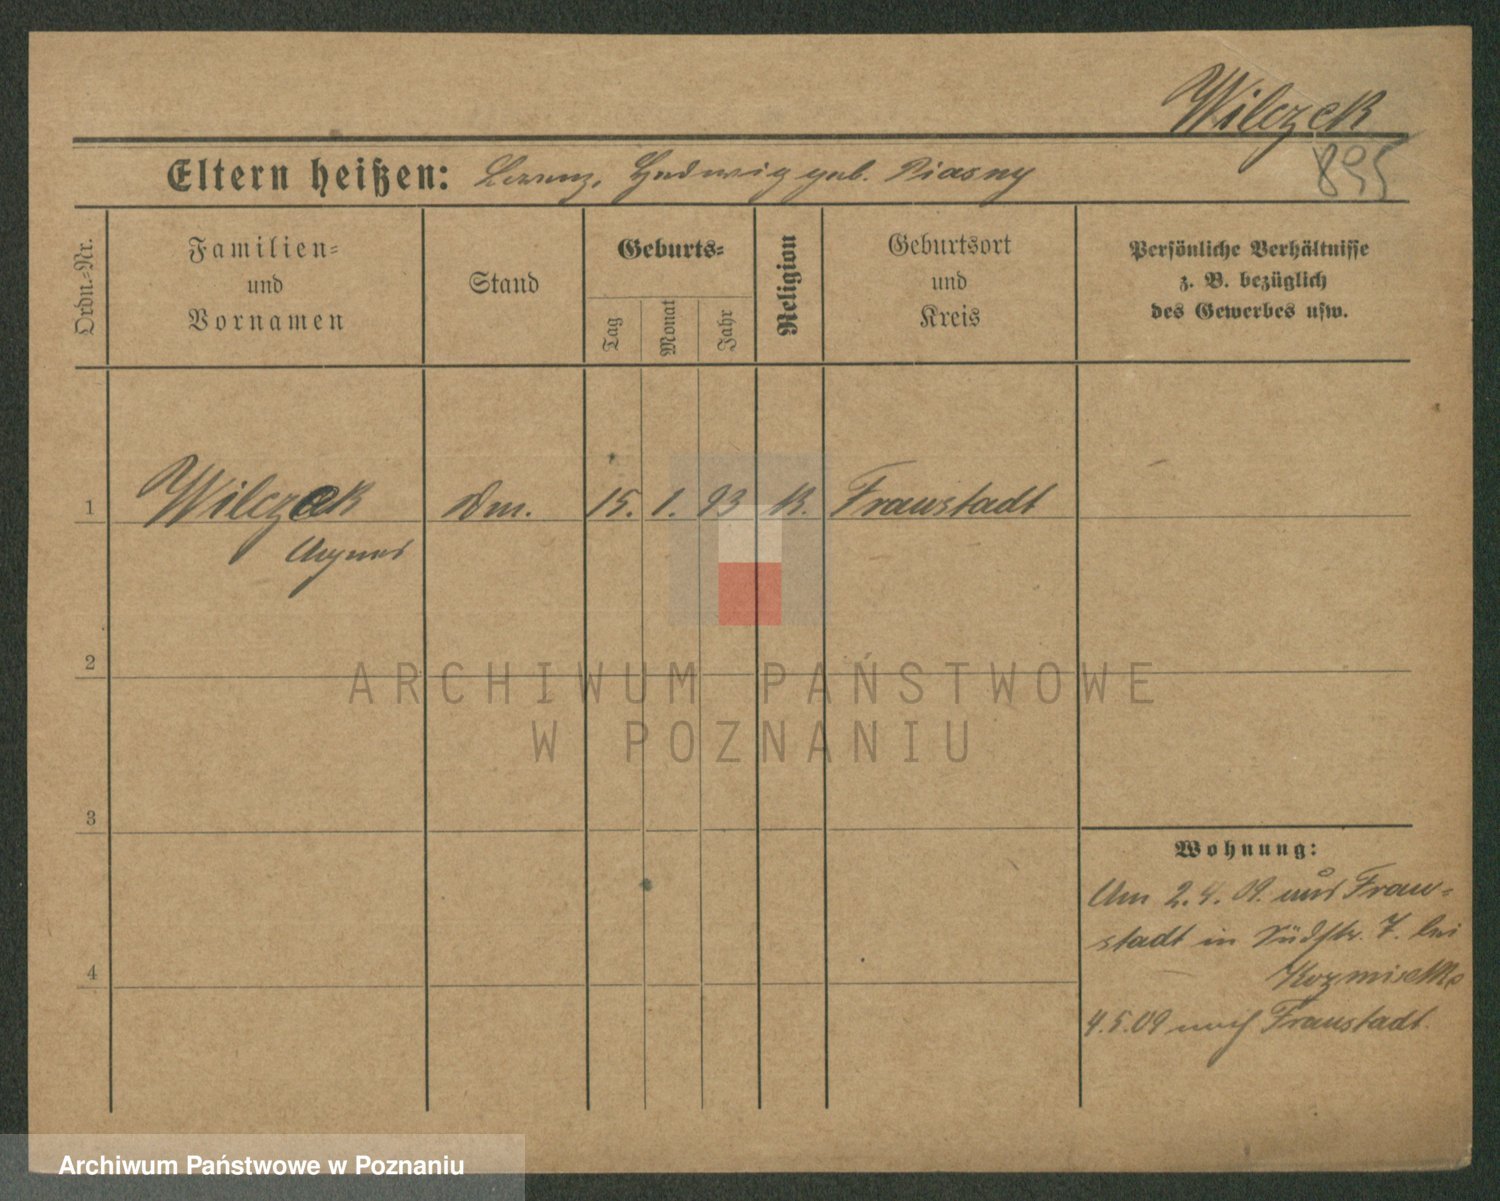 Wilczek
895
Eltern heißen: Lorenz, Hedwig geb. Piasny
Ordn.-Nr.
Familien-
und
Vornamen
Stand
Geburts-
Tag
Monat
Jahr
Religion
Geburtsort
und
Kreis
Persönliche Verhältnisse
z. B. bezüglich
des Gewerbes usw.
1
Wilczek
Agnes
Dm.
15.
1.
93
K.
Fraustadt
2
ARCHIWUM PAŃSTWOWE
W POZNANIU
3
Wohnung:
Am 2.4.09. aus Frau-
stadt in Südstr. 7. bei
4
4.5.09 nach Fraustadt.
Archiwum Państwowe w Poznaniu